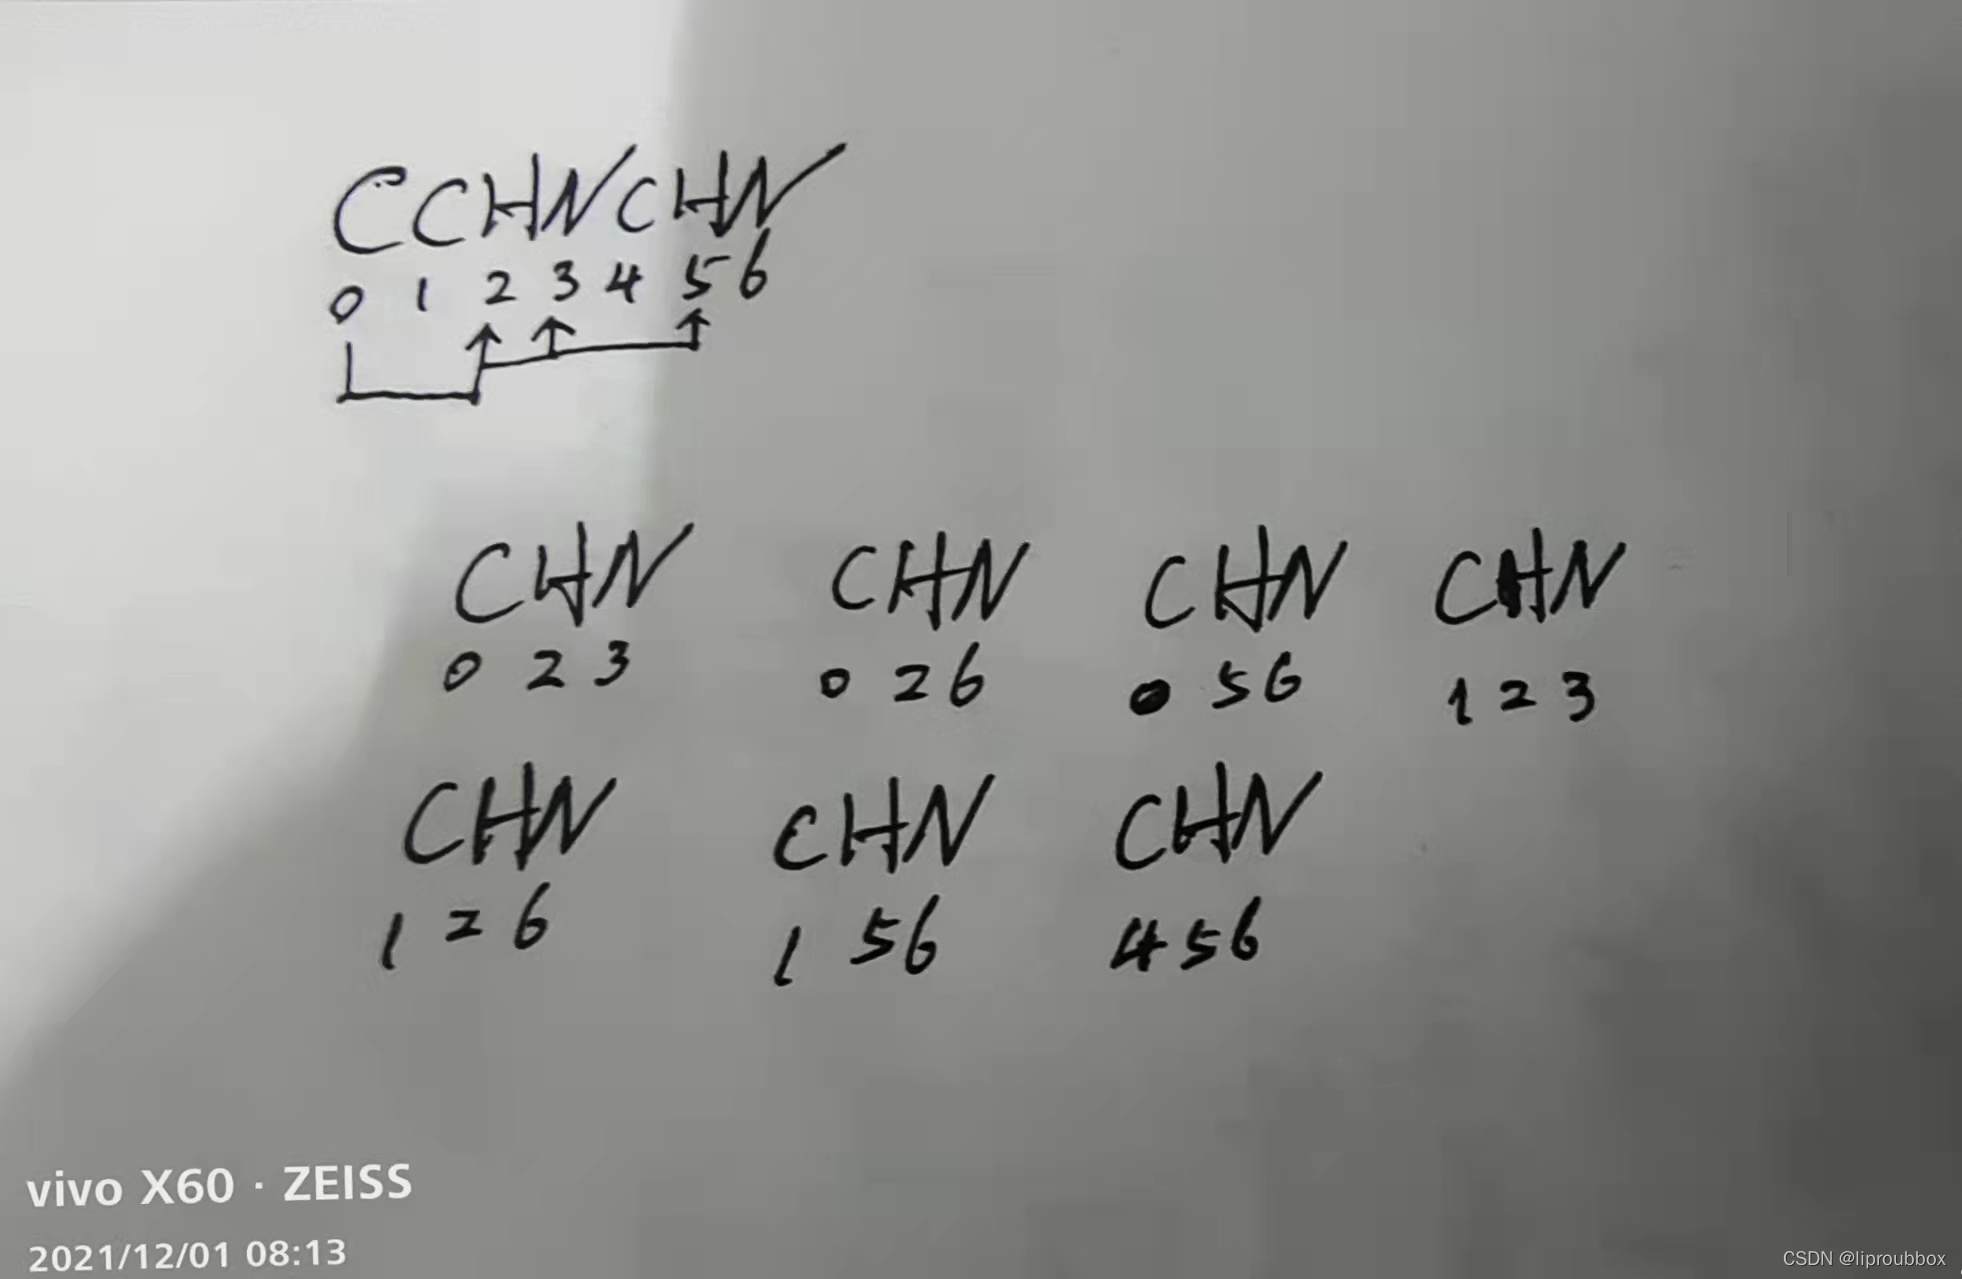 CCHNCHN
0 1 2 3 4 5 6
CHN CHN CHN CHN
0 2 3 0 2 6 0 5 6 1 2 3
CHN CHN CHN
1 2 6 1 5 6 4 5 6
vivo X60 · ZEISS
2021/12/01 08:13
CSDN @liproubbox